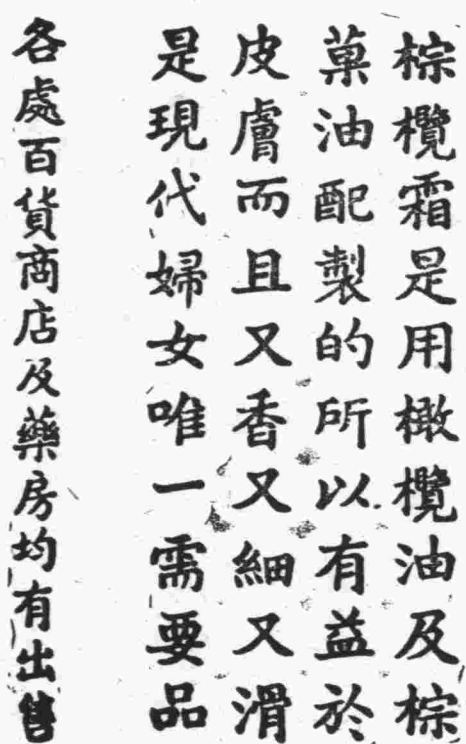 棕欖霜是用橄欖油及棕
菓油配製的所以有益於
皮膚而且又香又細又滑
是現代婦女唯一需要品
各處百貨商店及藥房均有出售